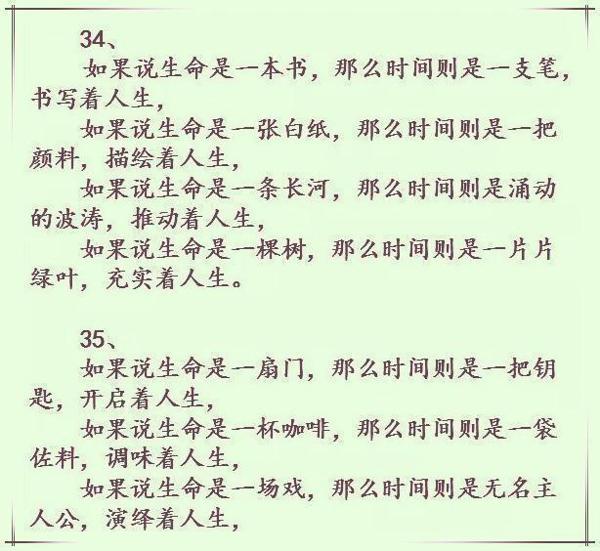 34、
如果说生命是一本书，那么时间则是一支笔，
书写着人生，
如果说生命是一张白纸，那么时间则是一把
颜料，描绘着人生，
如果说生命是一条长河，那么时间则是涌动
的波涛，推动着人生，
如果说生命是一棵树，那么时间则是一片片
绿叶，充实着人生。
35、
如果说生命是一扇门，那么时间则是一把钥
匙，开启着人生，
如果说生命是一杯咖啡，那么时间则是一袋
佐料，调味着人生，
如果说生命是一场戏，那么时间则是无名主
人公，演绎着人生，